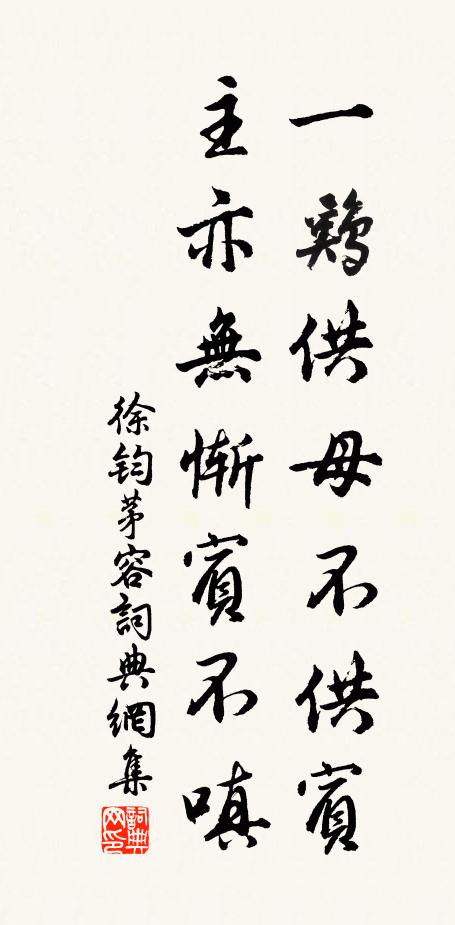 一鷄供母不供賓
主亦無慚賓不嗔
徐鈞茅容詞典網集
詞典网印